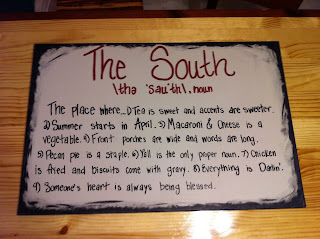 The South
\thə 'sau'th\. noun
The place where... 1) Tea is sweet and accents are sweeter.
2) Summer starts in April. 3) Macaroni & Cheese is a
vegetable. 4) Front porches are wide and words are long.
5) Pecan pie is a staple. 6) Y'all is the only proper noun. 7) Chicken
is fried and biscuits come with gravy. 8) Everything is Darlin'.
9) Someone's heart is always being blessed.